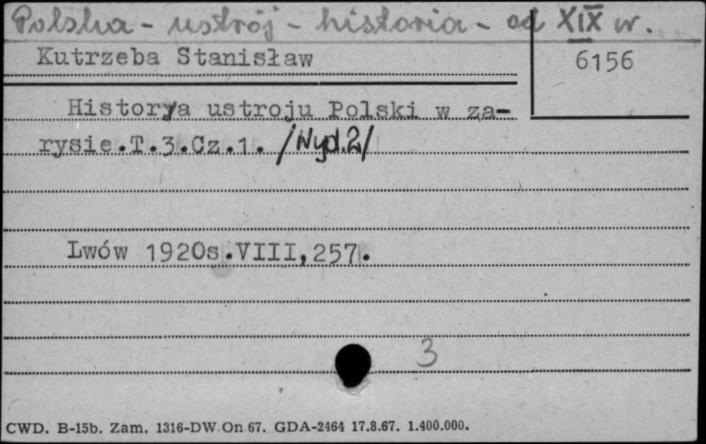 Polska - ustrój - historia - od XIX w.
Kutrzeba Stanisław
6156
Historya ustroju Polski w za-
rysie.T.3.Cz.1. /Wyd.2/
Lwów 1920s.VIII,257.
3
CWD. B-15b. Zam. 1316-DW On 67. GDA-2464 17.8.67. 1.400.000.